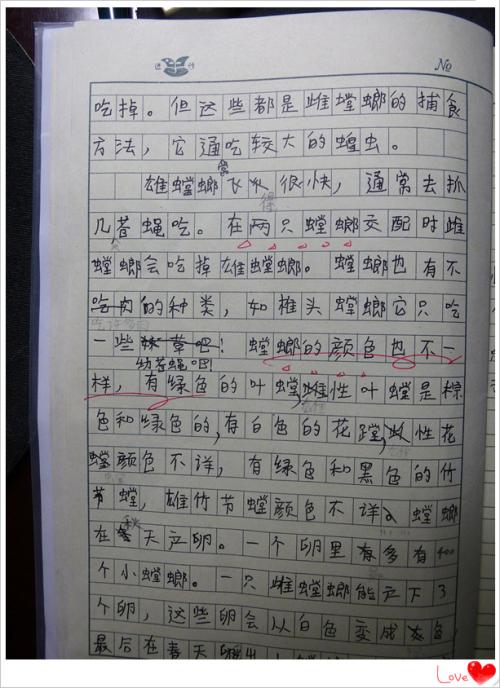 No
吃掉。但这些都是雌螳螂的捕食
方法，它通吃较大的蝗虫。
常
雄螳螂飞很快，通常去抓
得
几苍蝇吃。在两只螳螂交配时雌
螳螂会吃掉雄螳螂。螳螂也有不
吃肉的种类，如椎头螳螂它只吃
一些草吧！螳螂的颜色也不一
幼苍蝇吧！
样，有绿色的叶螳，雄性叶螳是棕
色和绿色的，有白色的花螳，性花
螳颜色不详，有绿色和黑色的竹
节螳，雄竹节螳颜色不详。螳螂
秋
在天产卵。一个卵里有多有400
个小螳螂。一只雌螳螂能产下3
个卵，这些卵会以白色变成灰色，
最后在春天
Love